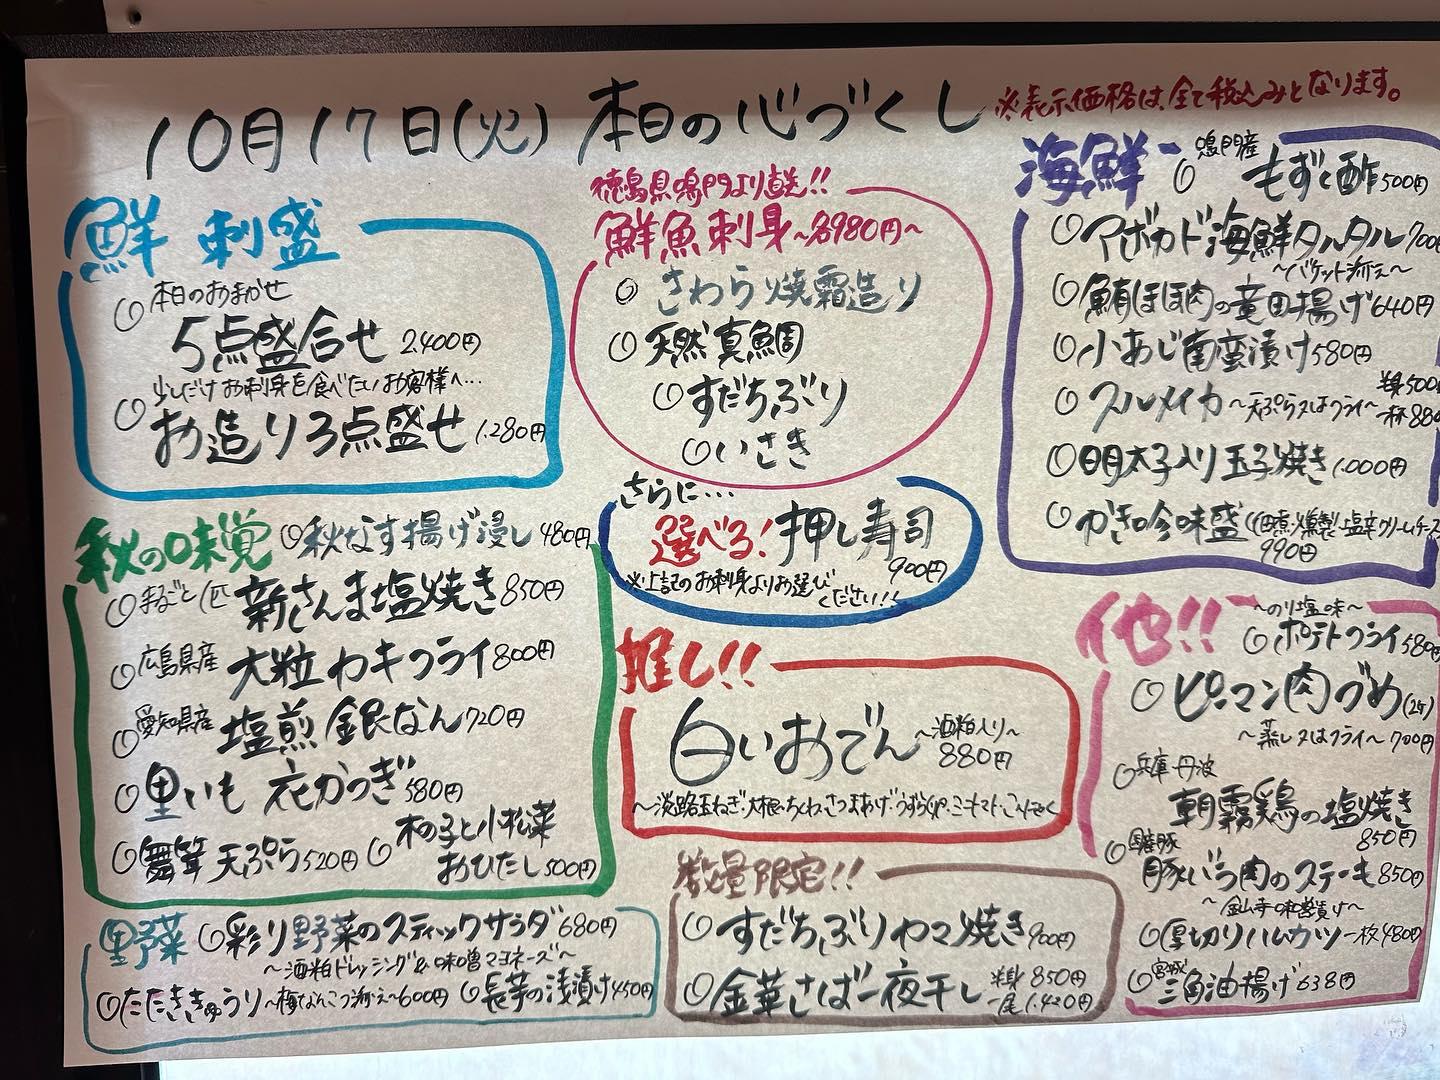 10月17日(火) 本日の心づくし
※表示価格は、全て税込みとなります。
鮮 刺盛
○本日のおまかせ
5点盛合せ 2,400円
○少しだけお刺身を食べたいお客様へ…
お造り3点盛せ 1,280円
徳島県鳴門より直送!!
鮮魚刺身~各980円~
○さわら焼霜造り
○天然真鯛
○すだちぶり
○いさき
さらに…
選べる!押し寿司
900円
※上記のお刺身よりお選び
ください!!
海鮮
○鳴門産 もずく酢 500円
○アボカド海鮮タルタル 700円
~バケット添え~
○鮪ほほ肉の竜田揚げ 640円
○小あじ南蛮漬け 580円
○スルメイカ~天ぷら又はフライ~ 半身500円
一杯880
○明太子入り玉子焼き 1,000円
○かきの吟味盛(佃煮・燻製・塩辛クリームチーズ
990円
秋の味覚
○秋なす揚げ浸し 480円
○まるごと1匹 新さんま塩焼き 850円
○広島県産 大粒カキフライ 800円
○愛知県産 塩煎銀なん 720円
○里いも 衣かつぎ 580円
○舞茸天ぷら 520円
○木の子と小松菜
おひたし 500円
推し!!
白いおでん ~酒粕入り~
880円
~淡路玉ねぎ・大根・ちくわ・さつまあげ・うずら串・ミニトマト・こんにゃく
他!!
~のり塩味~
○ポテトフライ 580円
○ピーマン肉づめ(2ケ)
~蒸し又はフライ~ 700円
○兵庫 丹波
朝霧鶏の塩焼き
850円
○国産豚
豚バラ肉のステーキ 850円
~金山寺味噌漬け~
○厚切りハムカツ 一枚480円
○宮城 三角油揚げ 638円
野菜
○彩り野菜のスティックサラダ 680円
~酒粕ドレッシング&味噌マヨネーズ~
○たたききゅうり~梅なんこつ添え~600円
○長芋の浅漬け 450円
数量限定!!
○すだちぶりカマ焼き 900円
○金華さば一夜干し 半身850円
一尾1,420円